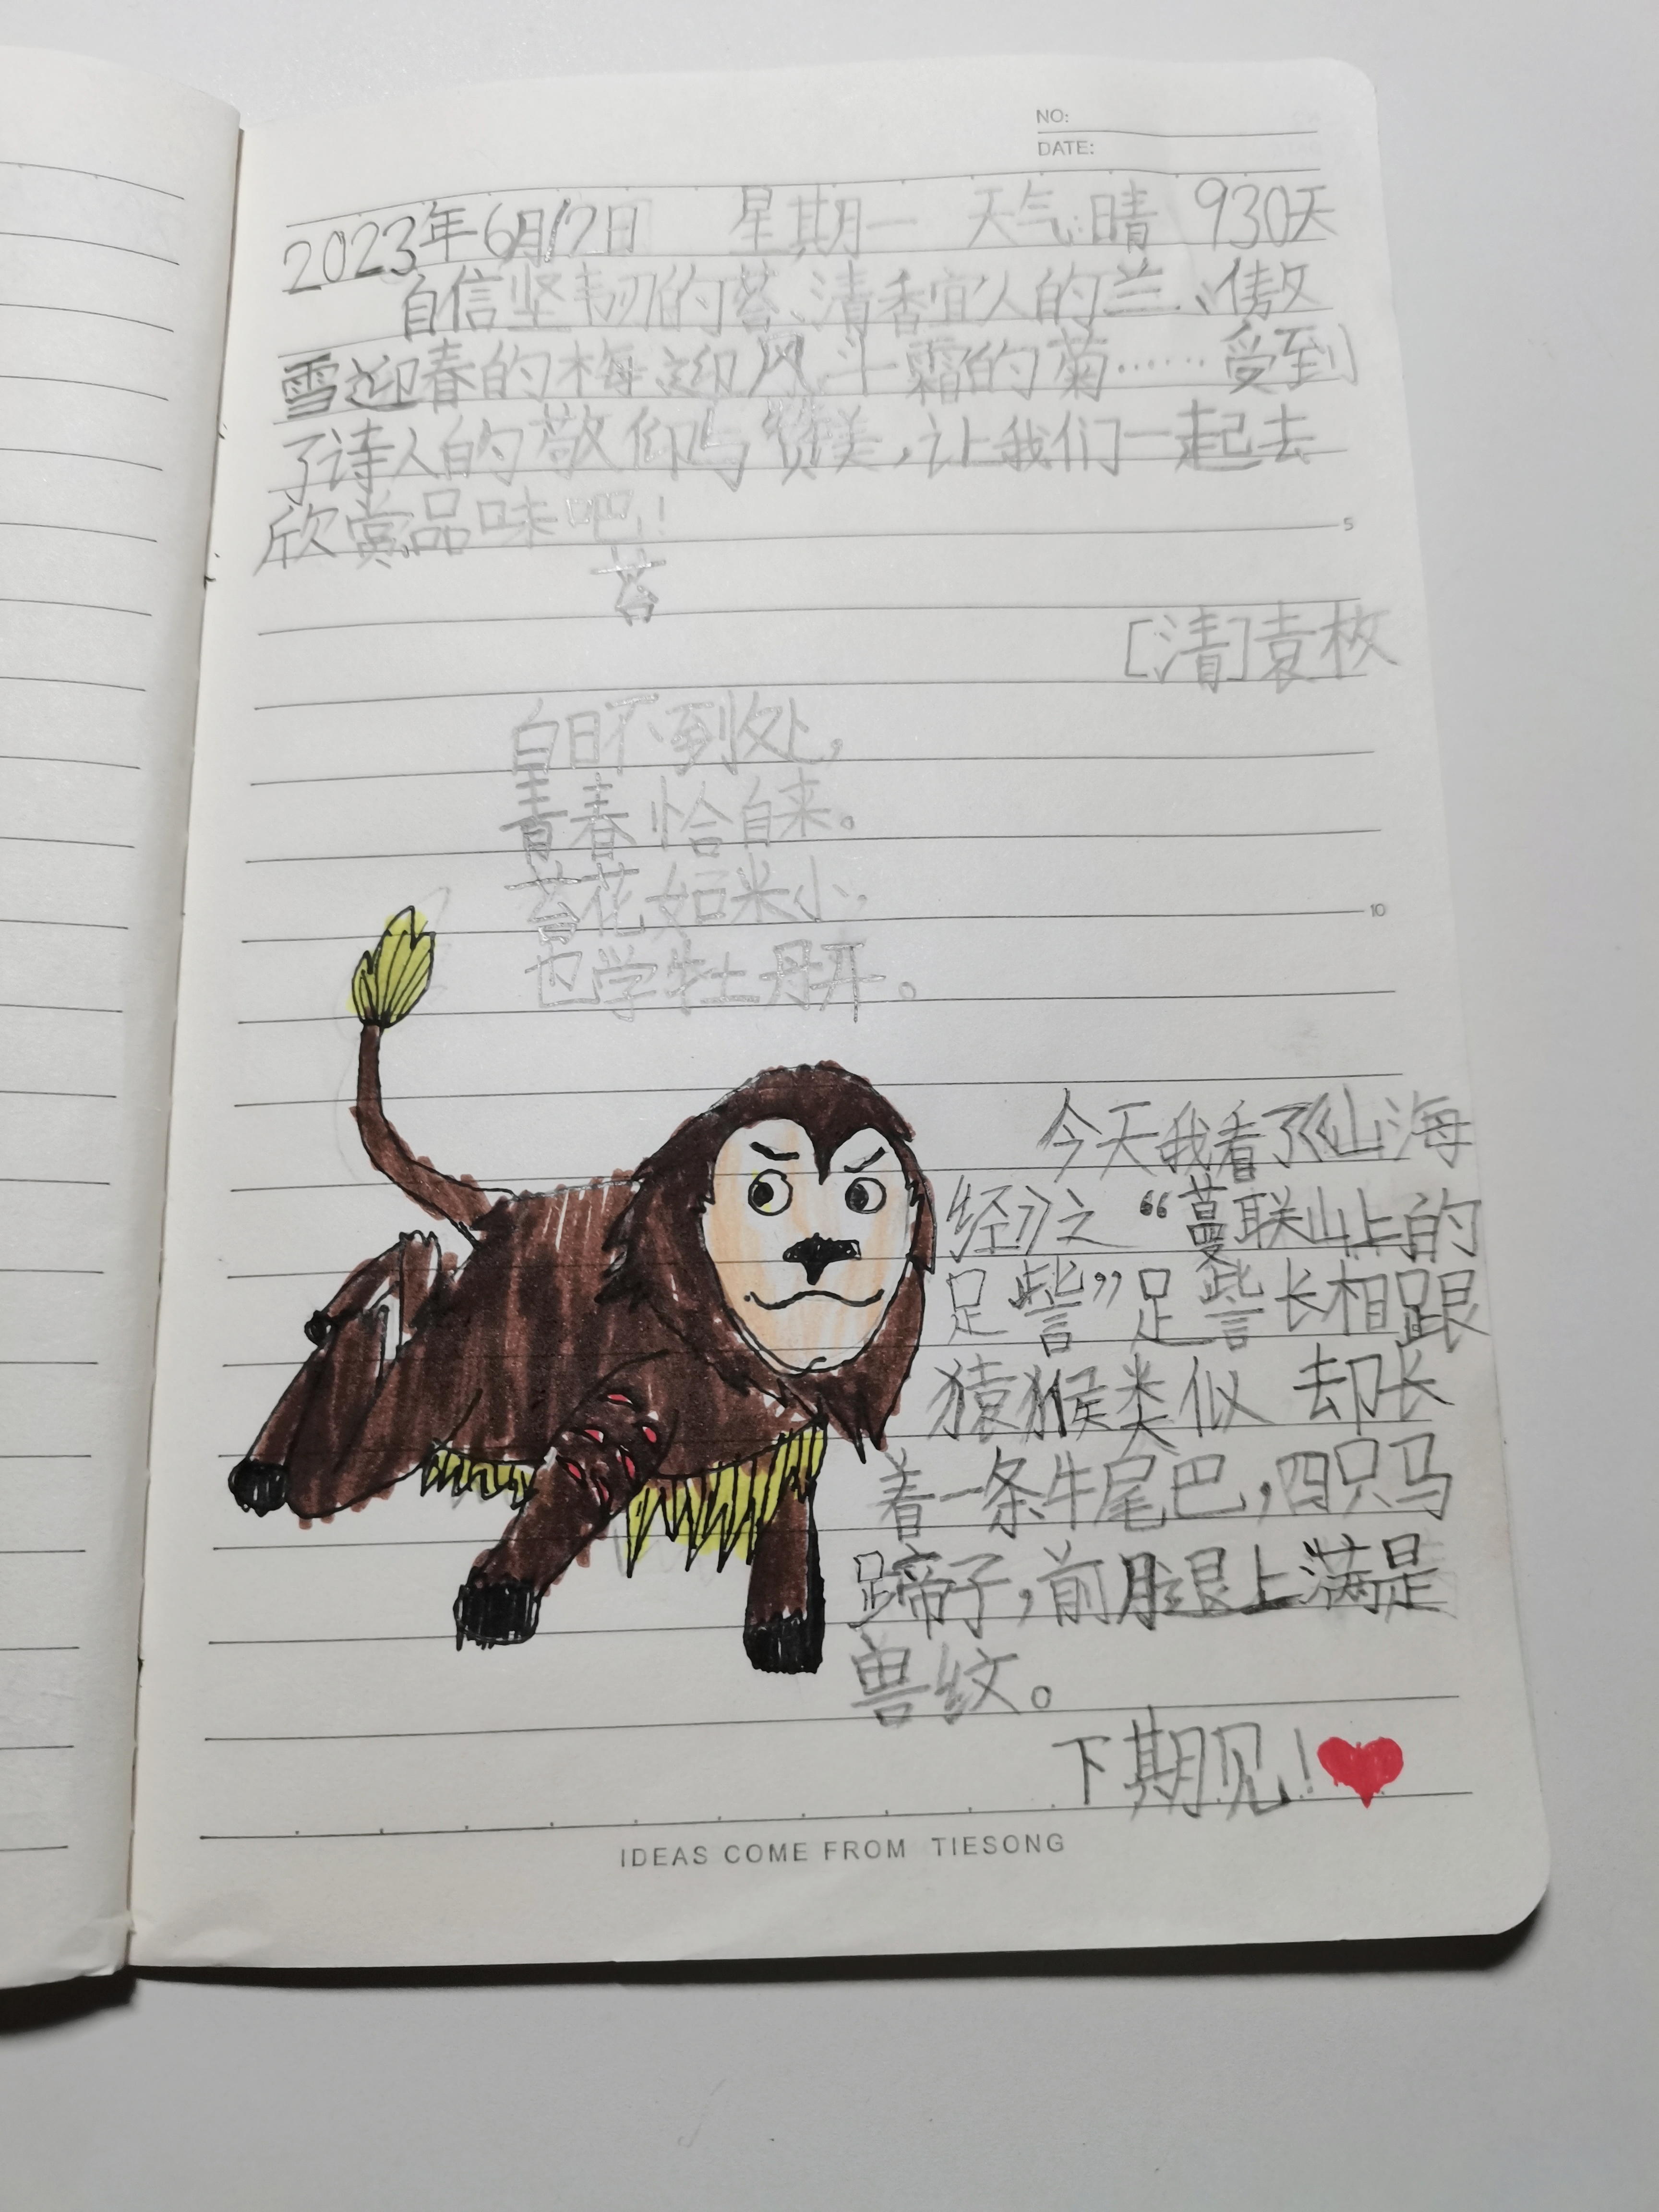 NO:
DATE:
2023年6月12日 星期一 天气:晴 930天
自信坚韧的苔、清香宜人的兰、傲
雪迎春的梅、迎风斗霜的菊……受到
了诗人的敬仰与赞美,让我们一起去
欣赏品味吧!
苔
[清]袁枚
白日不到处,
青春恰自来。
苔花如米小,
也学牡丹开。
今天我看了《山海
经》之“蔓联山上的
足訾”足訾长相跟
猿猴类似 却长
着一条牛尾巴,四只马
蹄子,前腿上满是
兽纹。
下期见!
5
10
IDEAS COME FROM TIESONG